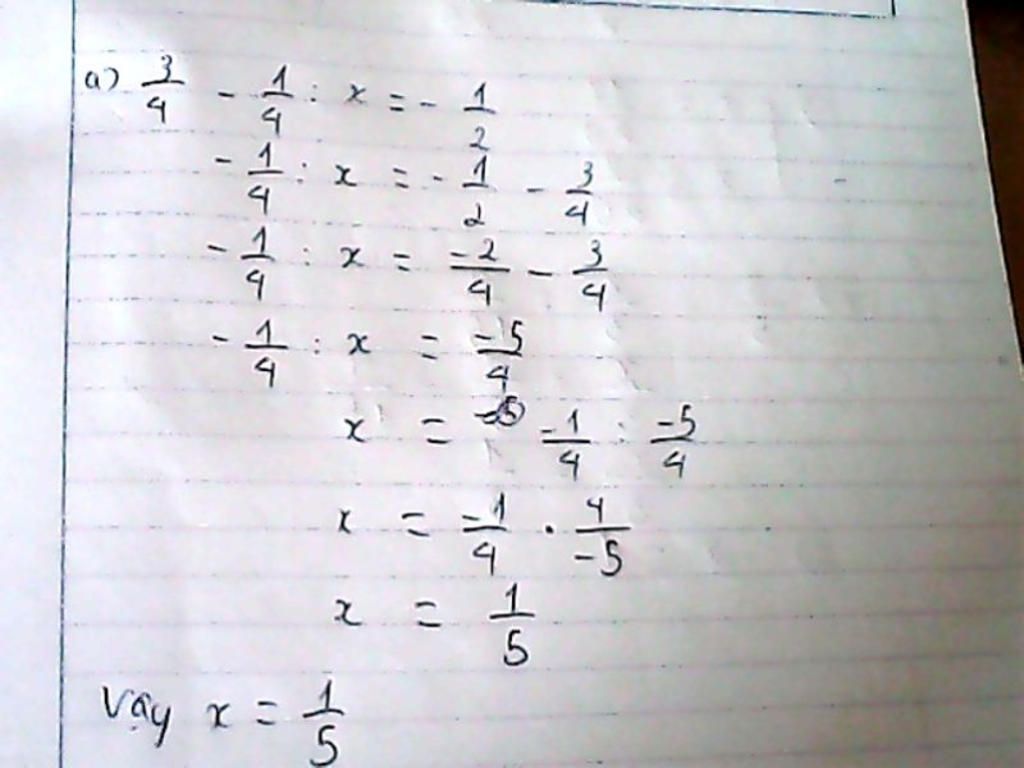 a) 3/4 - 1/4 : x = - 1/2
- 1/4 : x = - 1/2 - 3/4
- 1/4 : x = -2/4 - 3/4
- 1/4 : x = -5/4
x = -1/4 : -5/4
x = -1/4 . 4/-5
x = 1/5
Vậy x = 1/5